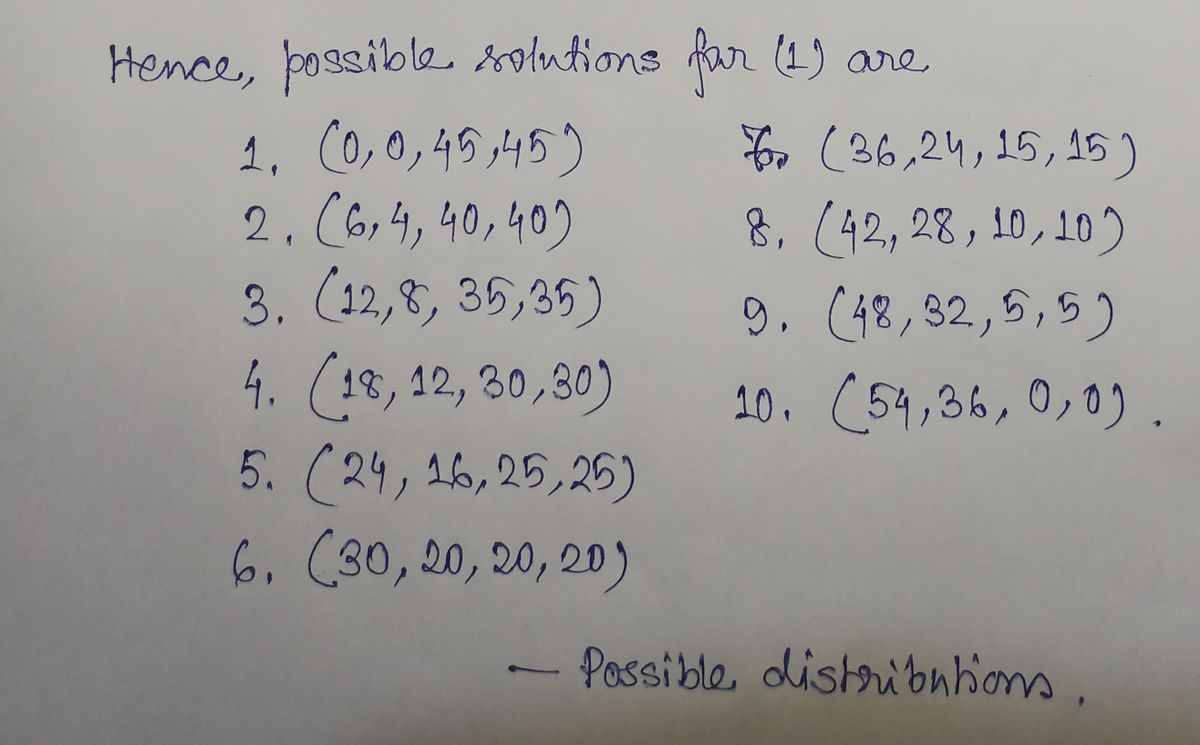 Hence, possible solutions for (1) are
1. (0,0,45,45)
2. (6,4,40,40)
3. (12,8,35,35)
4. (18,12,30,30)
5. (24,16,25,25)
6. (30,20,20,20)
7. (36,24,15,15)
8. (42,28,10,10)
9. (48,32,5,5)
10. (54,36,0,0).
— Possible distributions.